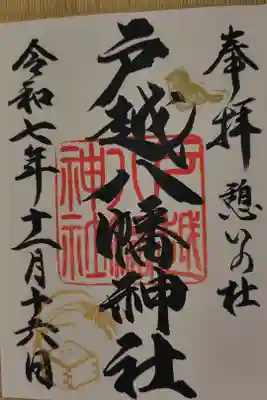 奉拝 憩いの杜
戸越八幡神社
戸越八幡神社
令和七年十一月十六日